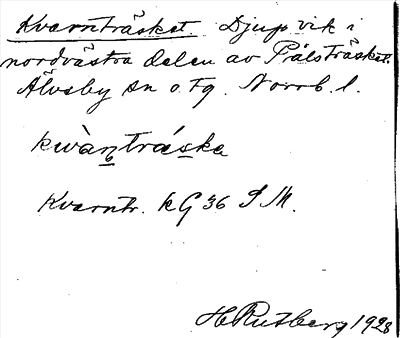 Kvarnträsket. Djup vik i
nordvästra delen av Pålsträsket.
Älvsby sn o. tg. Norrb. l.
kwàn̥tráska
Kvarntr. kG 36 S M.
H Rutberg 1928